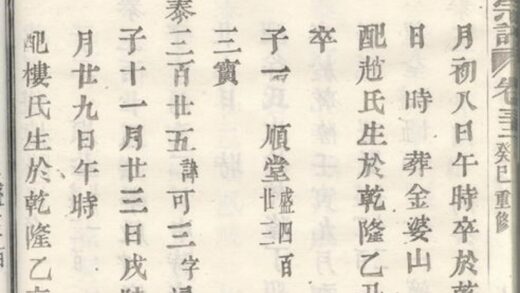 宗譜 卷 癸巳重修
月初八日午時卒於
日 時 葬金婆山
配趙氏生於乾隆乙
卒
子一 順堂 盛四百廿三
三寶
泰三百廿五 諱可三字
子十一月廿三日戌時
月廿九日午時
配樓氏生於乾隆乙